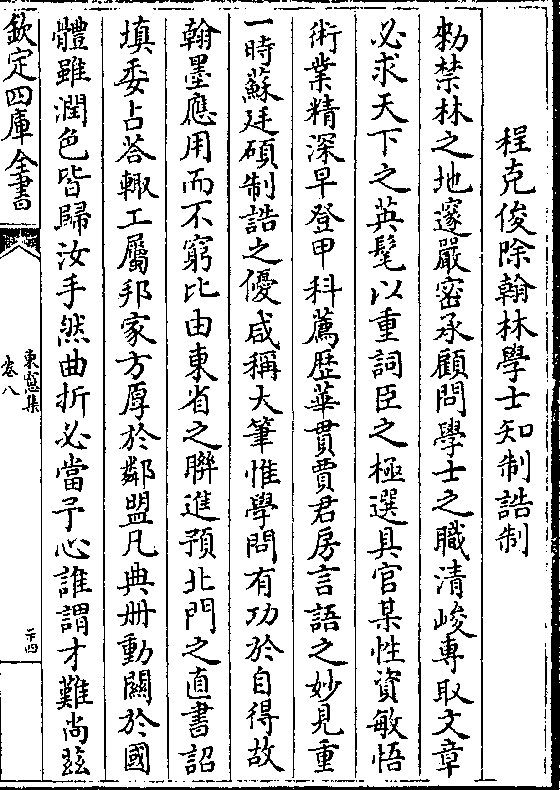 程克俊除翰林學士知制誥制
勅禁林之地邃嚴密承顧問學士之職清峻専取文章
必求天下之英髦以重詞臣之極選具官某性資敏悟
術業精深早登甲科薦歴華貫賈君房言語之妙見重
一時蘇廷碩制誥之優咸稱大筆惟學問有功於自得故
翰墨應用而不窮比由東省之聨進預北門之直書詔
填委占荅輙工屬邦家方厚於鄰盟凡典册動關於國
體雖潤色皆歸汝手然曲折必當予心誰謂才難尚兹
欽定四庫全書
東窻集
卷八
二十四